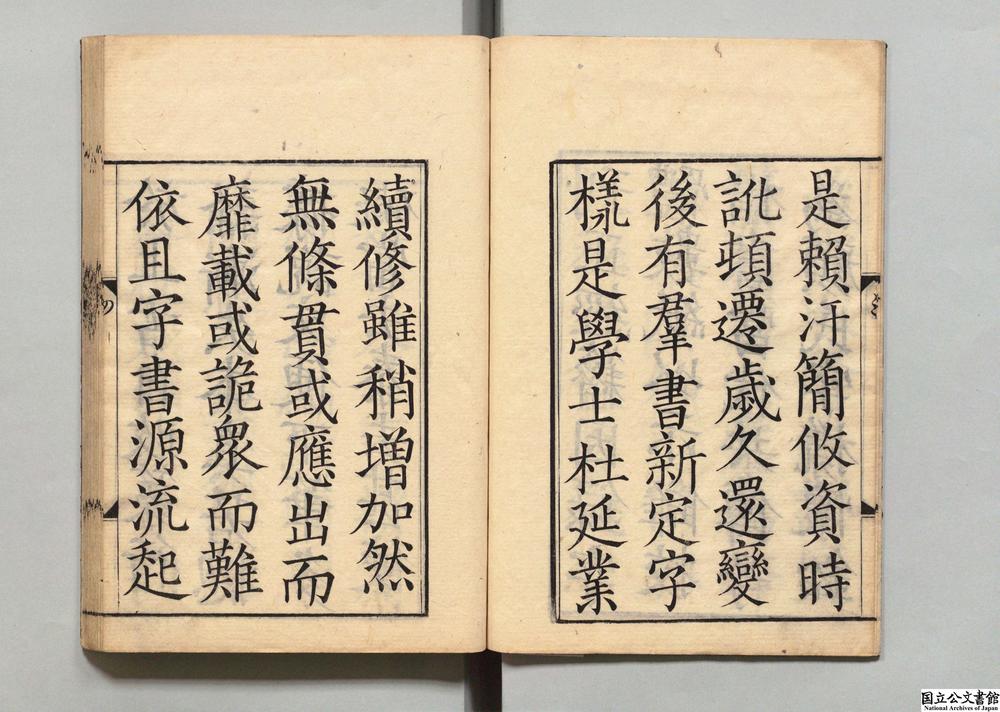 是賴汗簡攸資時
訛頓遷歳久還變
後有羣書新定字
樣是學士杜延業
續修雖稍增加然
無條貫或應出而
靡載或詭衆而難
依且字書源流起
国立公文書館
National Archives of Japan